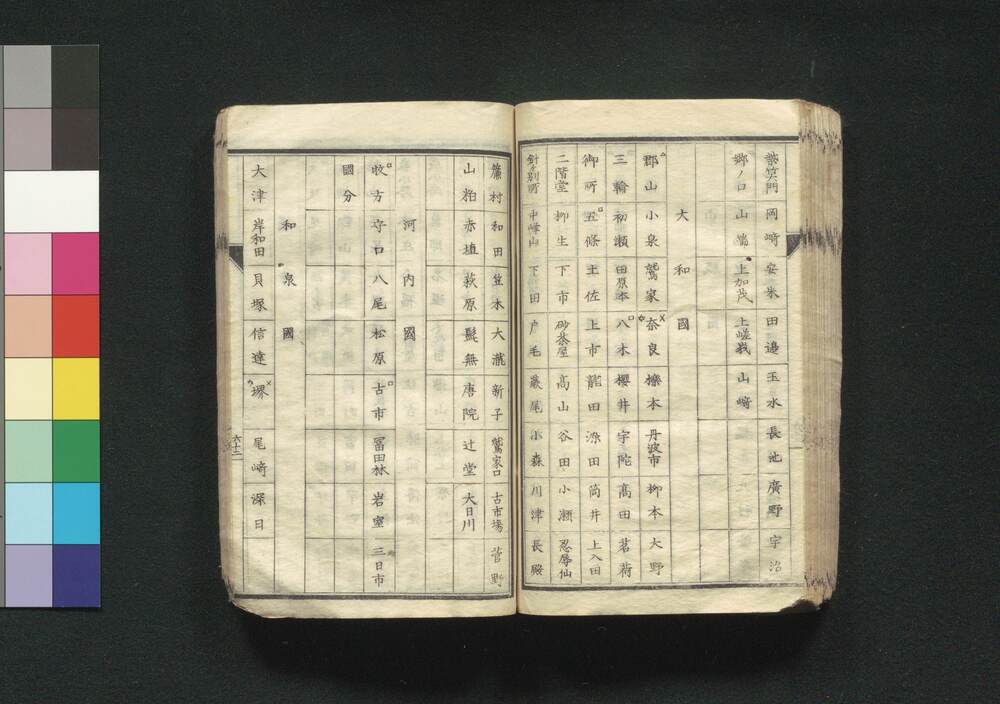 岡﨑 安朱 田邉 玉水 長池 廣野 宇治
郷ノ口 山端 上加茂 上嵯峨 山﨑
大和國
郡山 小泉 鷲家 奈良 櫟本 丹波市 柳本 大野
三輪 初瀬 田原本 八木 櫻井 宇陀 髙田 茗荷
御所 五條 土佐 上市 龍田 添田 筒井 上入田
二階堂 柳生 下市 砂茶屋 髙山 谷田 小瀬 忍辱仙
針ヶ別所 中峰山 下田 戸毛 嚴尾 小森 川津 長殿
簾村 和田 笠木 大瀧 新子 鷲家口 古市場 菅野
山粕 赤埴 萩原 鬚無 唐院 辻堂 大日川
河内國
枚方 守口 八尾 松原 古市 冨田林 岩室 三日市
國分
和泉國
大津 岸和田 貝塚 信達 堺 尾﨑 深日
六十二